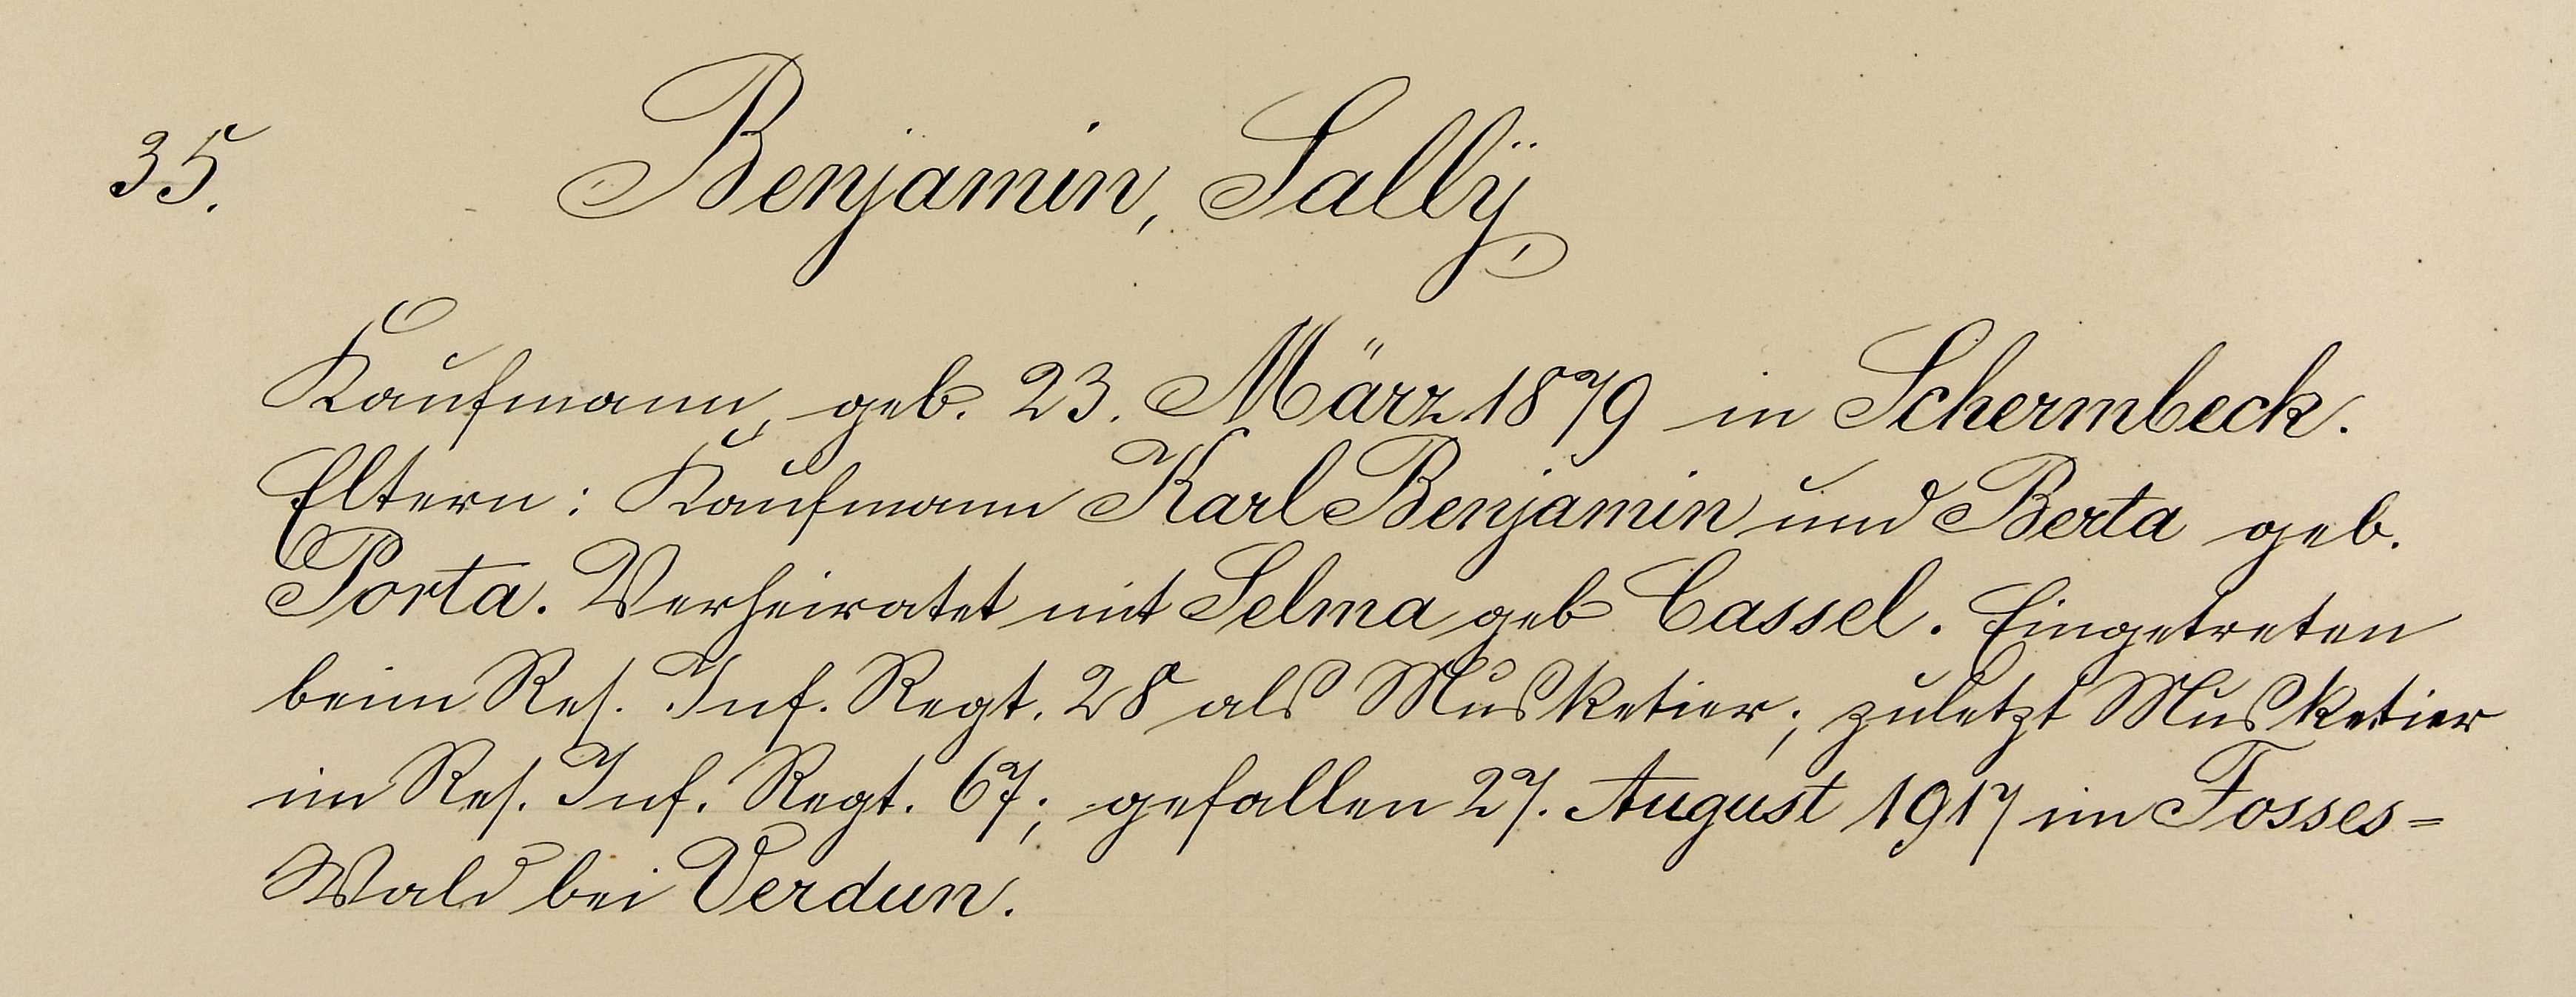 35. Benjamin, Sallÿ,
Kaufmann, geb. 23. März 1879 in Schermbeck.
Eltern: Kaufmann Karl Benjamin und Berta geb.
Porta. Verheiratet mit Selma geb Cassel. Eingetreten
beim Res. Inf. Regt. 28 als Musketier; zuletzt Musketier
im Res. Inf. Regt. 67; gefallen 27. August 1917 im Fosses=
Wald bei Verdun.